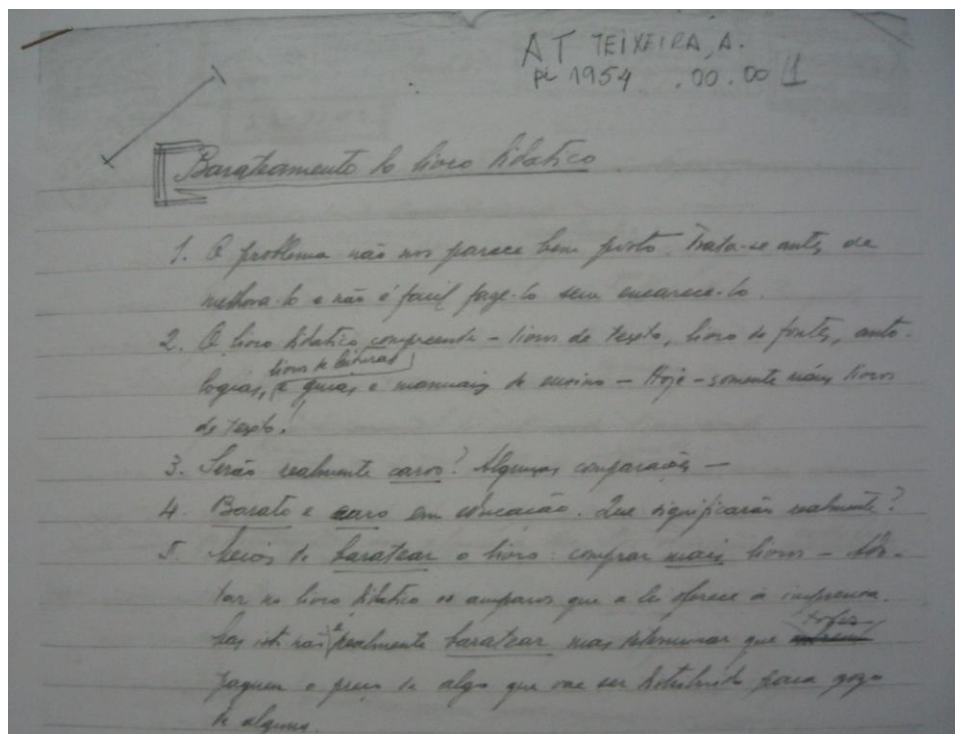 AT TEIXEIRA, A.
pi 1954 .00.00 1
Barateamento do livro didatico
1. O problema não nos parece bem posto. Trata-se antes de
melhora-lo e não é facil faze-lo sem encarece-lo.
2. O livro didatico compreende – livros de texto, livro de fontes, anto-
livros de leituras
logias, e guias e manuais de ensino – Hoje – somente livros
de texto!
3. Serão realmente caros? Algumas comparações –
4. Barato e caro em educação. Que significarão realmente?
5. Meios de baratear o livro: comprar mais livros –
tar no livro didatico os amparos que a lei oferece à imprensa.
todos
Mas isto não é realmente baratear mas determinar que
paguem o preço de algo que vae ser distribuido para gozo
de alguns.